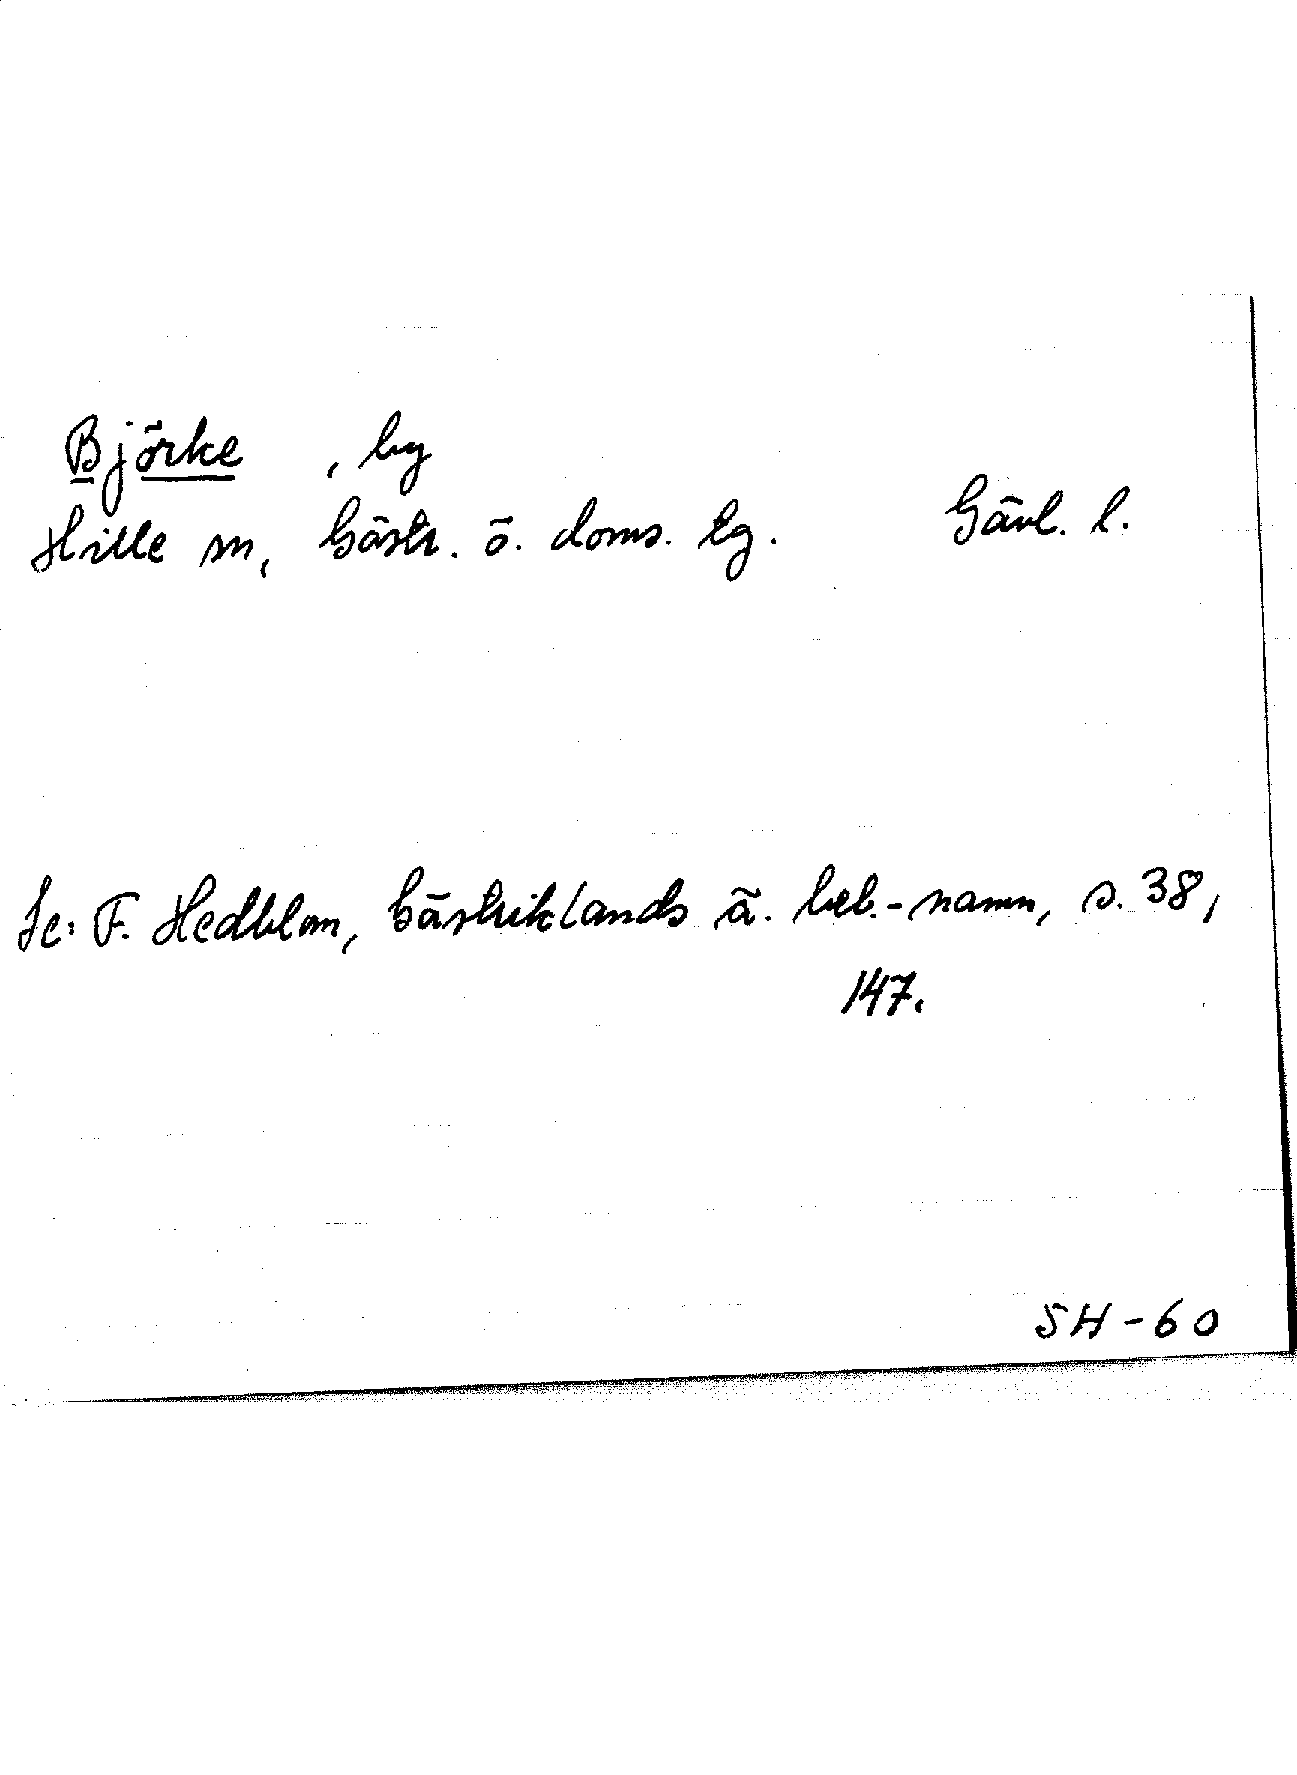 Björke , by
Hille sn, Gästr. ö. doms. lg. Gävl. l.
Se: F. Hedblom, Gästriklands ä. beb.-namn, s. 38,
147.
SH-60